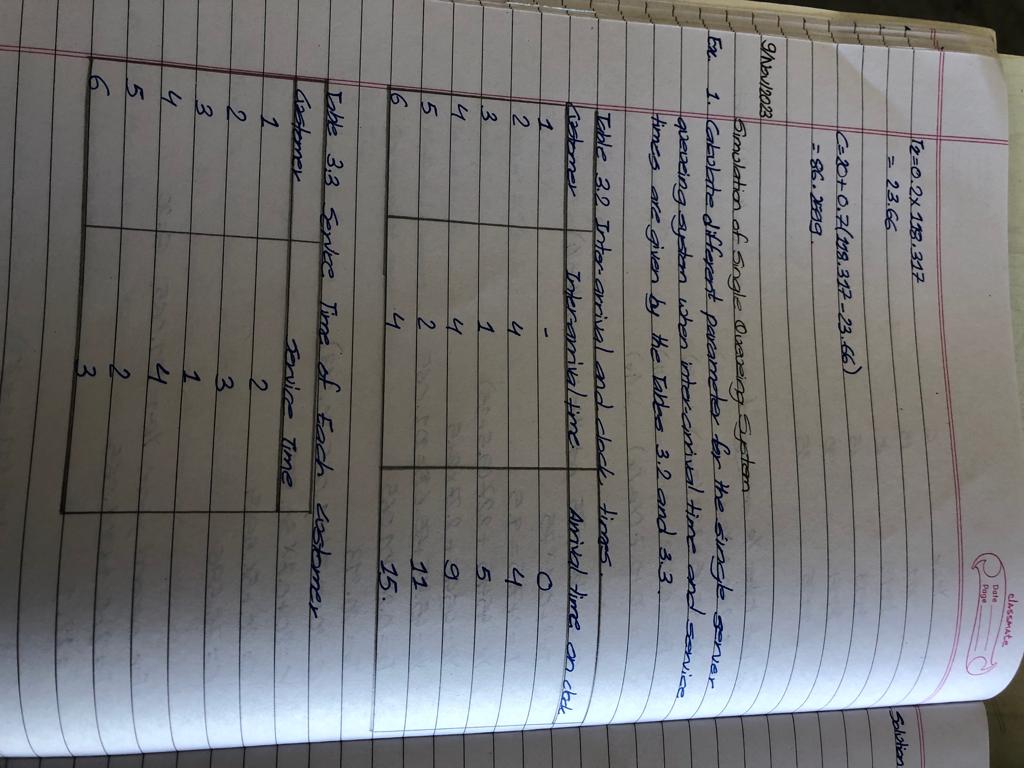 classmate
Date
Page
Te=0.2×198.317
= 23.66
C=80+0.7(198.317-23.66)
= 86.
9/Nov/2023
Simulation of Single Queuing System
Ex. 1. Calculate different parameter for the single server
queueing system when interarrival time and service
times are given by the Tables 3.2 and 3.3.
Table 3.2 Inter-arrival and clock times.
Customer Interarrival time Arrival time on clock
1 - 0
2 4 4
3 1 5
4 4 9
5 2 11
6 4 15.
Table 3.3 Service Time of Each customer
Customer Service Time
1 2
2 3
3 1
4 4
5 2
6 3
Solution